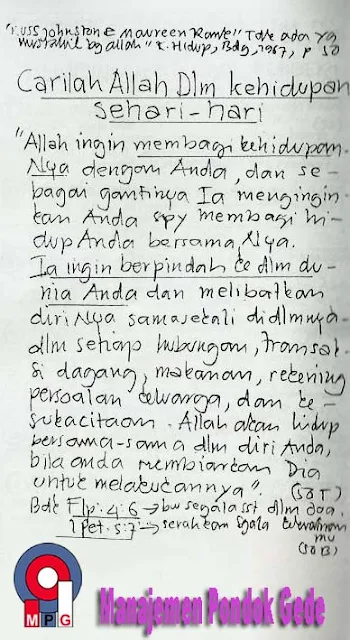 "Russ Johnston & Maureen Rank" Tak ada yg
mustahil bg allah" K. Hidup, Bdg, 1987, p 50
Carilah Allah Dlm kehidupan
sehari-hari
"Allah ingin membagi kehidupan-
Nya dengan Anda, dan se-
bagai gantinya Ia mengingin-
kan Anda spy membagi hi-
dup Anda bersama Nya.
Ia ingin berpindah ke dlm du-
nia Anda dan melibatkan
diri Nya samasekali didlmnya-
dlm setiap hubungan, transak-
si dagang, makanan, rekening
persoalan keluarga, dan ke-
sukacitaan. Allah akan hidup
bersama-sama dlm diri Anda,
bila anda membiarkan Dia
untuk melakukannya".
Bdk Flp. 4:6 → bw segala sst dlm doa.
1 Pet. 5:7 → serahkan sgala
mu
MPG
Manajemen Pondok Gede